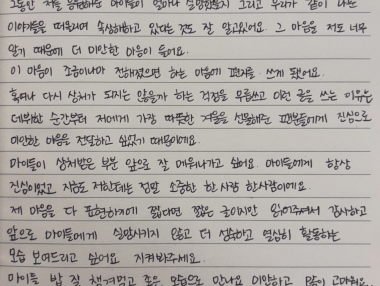 그동안 저를 응원해준 마이들이 얼마나 실망했을지 그리고 우리가 같이 나눈
이야기들을 떠올리며 속상해하고 있다는 것도 잘 알고있어요. 그 마음을 저도 너무
알기 때문에 더 미안한 마음이 들어요.
이 마음이 조금이나마 전해졌으면 하는 마음에 편지를 쓰게 됐어요.
혹여나 다시 상처가 되지는 않을까 하는 걱정을 무릅쓰고 이런 글을 쓰는 이유은
데뷔한 순간부터 저에게 가장 따뜻한 겨울을 선물해준 팬분들에게 진심으로
미안한 마음을 전달하고 싶었기 때문이에요.
마이들이 상처받은 부분 앞으로 잘 메워나가고 싶어요. 마이들에게 항상
진심이었고 지금도 저한테는 정말 소중한 한사람 한사람이에요.
제 마음을 다 표현하기에 짧다면 짧은 글이지만 읽어주셔서 감사하고
앞으로 마이들에게 실망시키지 않고 더 성숙하고 열심히 활동하는
모습 보여드리고 싶어요 지켜봐주세요.
마이들 밥 잘 챙겨먹고 좋은 모습으로 만나요 미안하고 많이 고마워요.